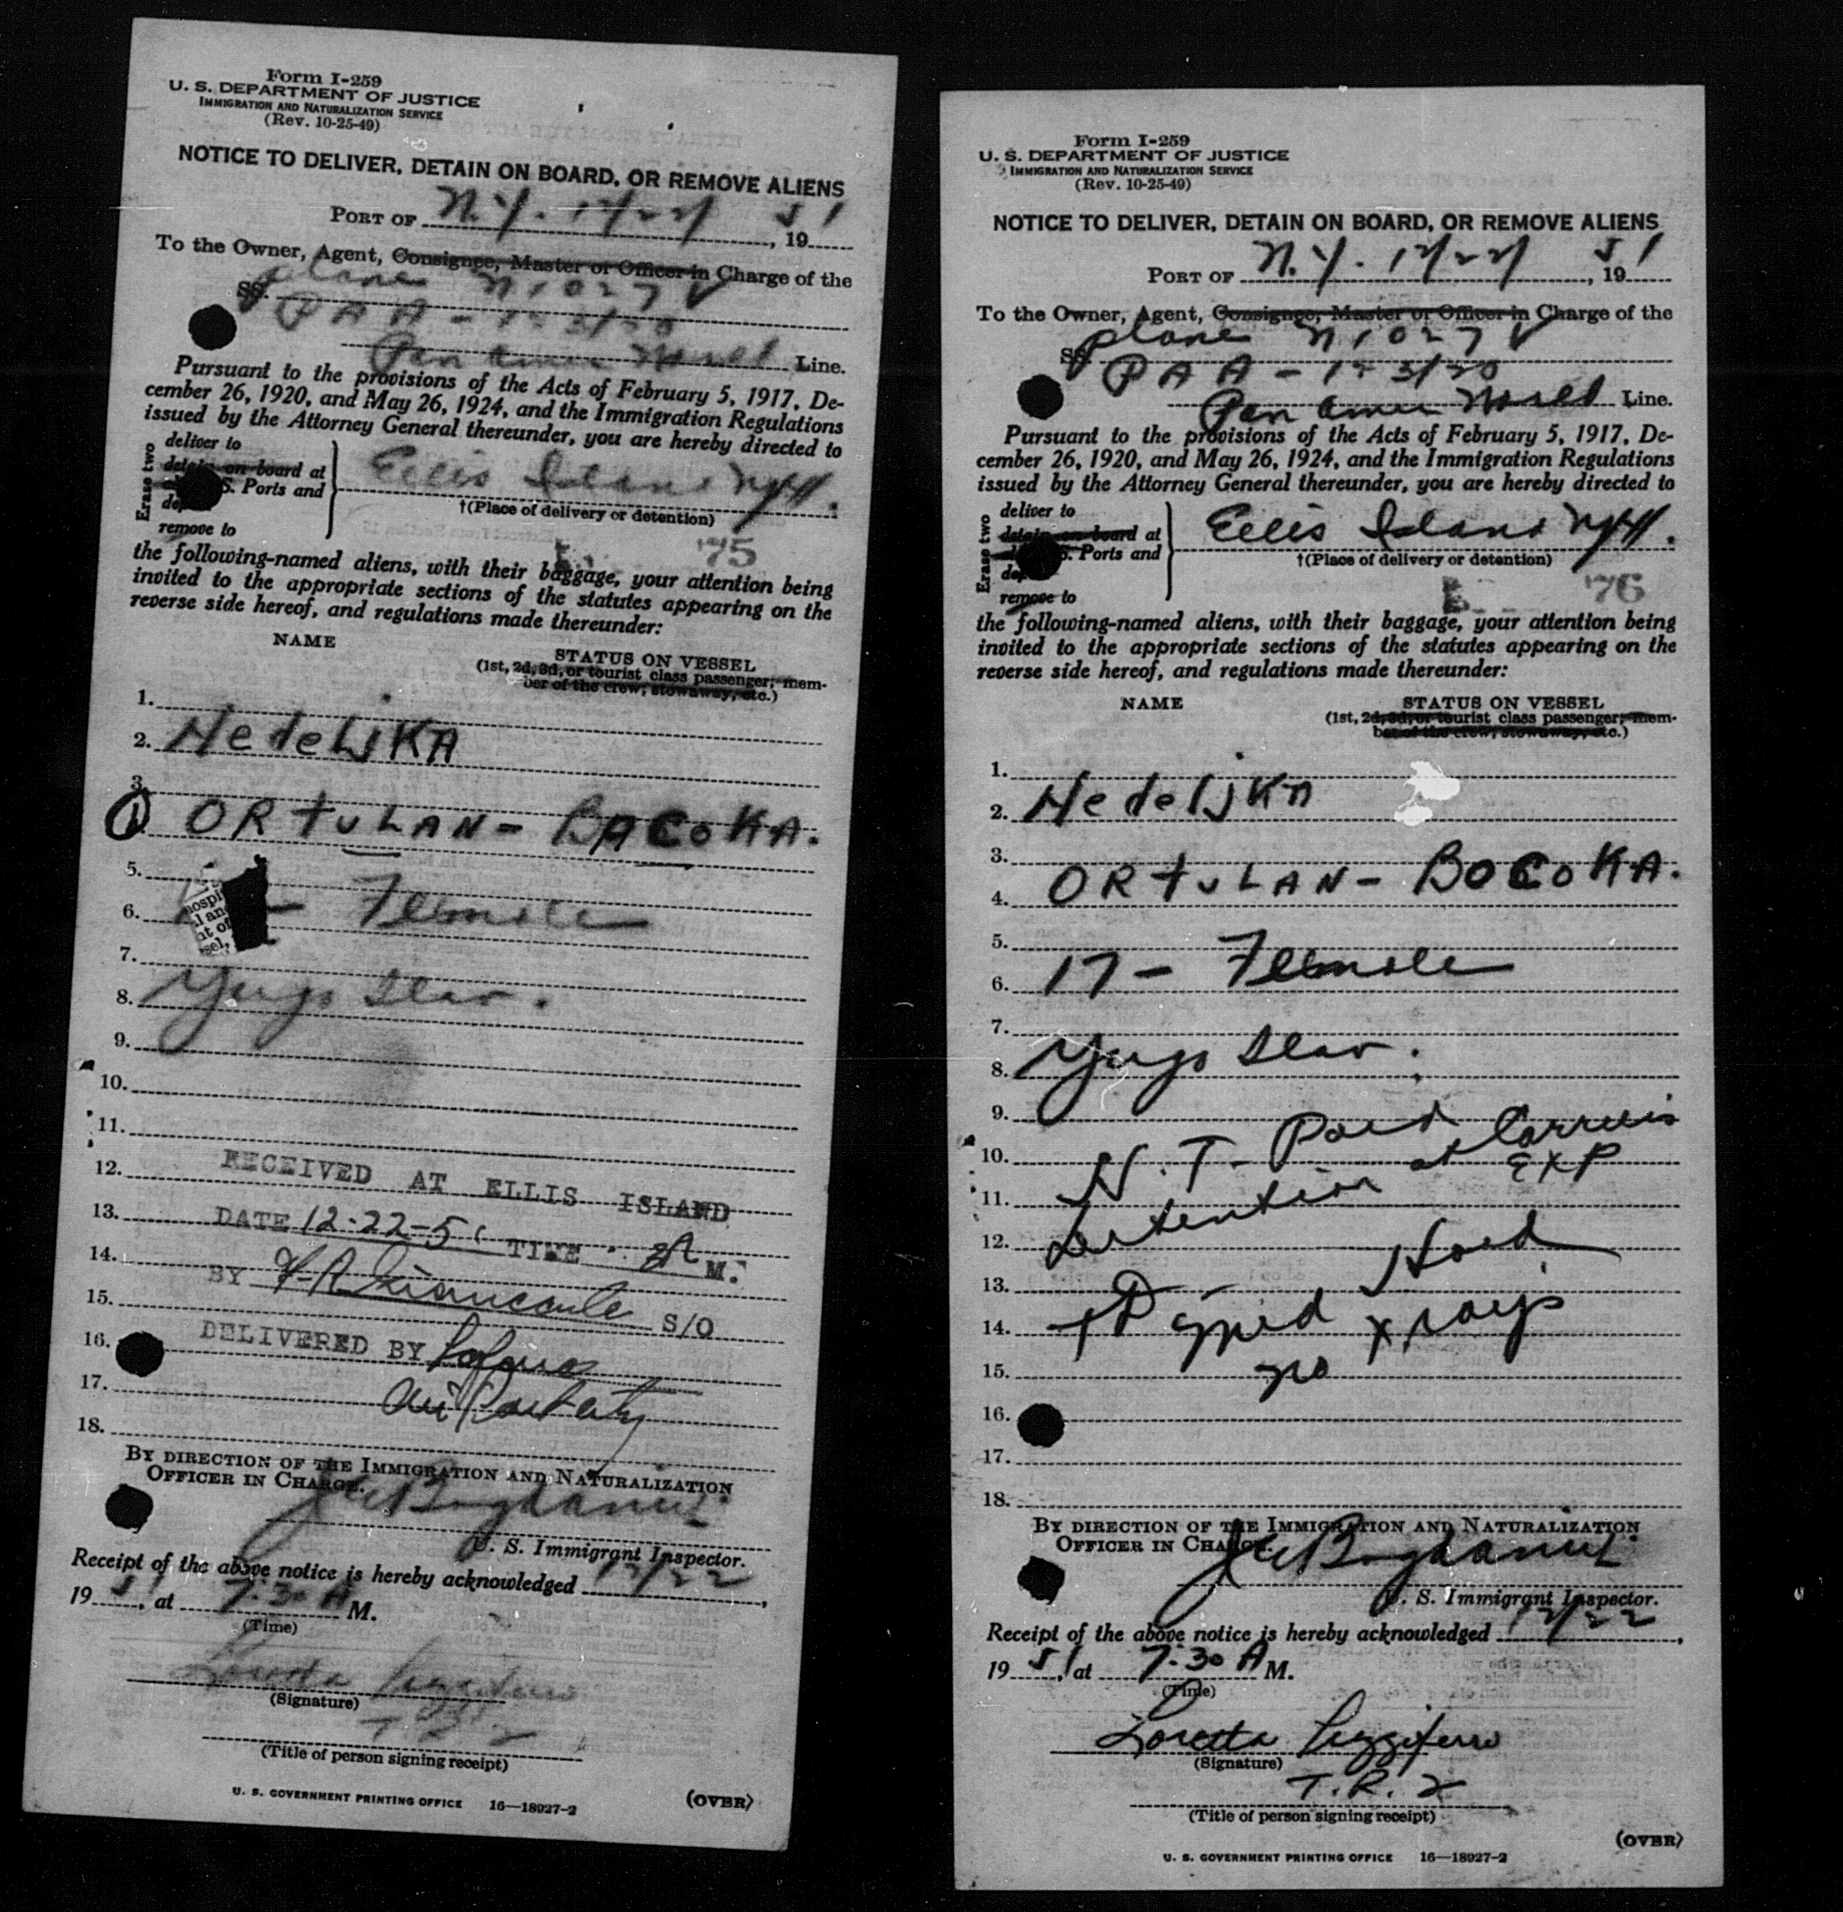 Form I-259
U. S. DEPARTMENT OF JUSTICE
IMMIGRATION AND NATURALIZATION SERVICE
(Rev. 10-25-49)
NOTICE TO DELIVER, DETAIN ON BOARD, OR REMOVE ALIENS
PORT OF N.Y. 12/22/, 19 51
To the Owner, Agent, Consignee, Master or Officer in Charge of the
SS. plane N1027V
PAA - 123/20
Pan Amer World Line.
Pursuant to the provisions of the Acts of February 5, 1917, De-
cember 26, 1920, and May 26, 1924, and the Immigration Regulations
issued by the Attorney General thereunder, you are hereby directed to
Erase two
deliver to
detain on board at
S. Ports and
remove to
Ellis Island NYH.
†(Place of delivery or detention)
75
the following-named aliens, with their baggage, your attention being
invited to the appropriate sections of the statutes appearing on the
reverse side hereof, and regulations made thereunder:
NAME
STATUS ON VESSEL
(1st, 2d, 3d, or tourist class passenger; mem-
ber of the crew; stowaway, etc.)
1.
2. NedeljKA
3.
1 ORtuLAN - BACoKA.
5.
6. Female
7.
8. Yugo Slav.
9.
10.
11.
12. RECEIVED AT ELLIS ISLAND
13. DATE 12-22-51 TIME M.
14.
BY S/O
15.
16. DELIVERED BY
17.
18.
BY DIRECTION OF THE IMMIGRATION AND NATURALIZATION
OFFICER IN CHARGE.
U. S. Immigrant Inspector.
Receipt of the above notice is hereby acknowledged 12/22,
19 51, at 7:30 A M.
(Time)
Loretta
(Signature)
T R 2
(Title of person signing receipt)
U. S. GOVERNMENT PRINTING OFFICE 16—18927-2
(OVER)
Form I-259
U. S. DEPARTMENT OF JUSTICE
IMMIGRATION AND NATURALIZATION SERVICE
(Rev. 10-25-49)
NOTICE TO DELIVER, DETAIN ON BOARD, OR REMOVE ALIENS
PORT OF N.Y. 12/22/, 19 51
To the Owner, Agent, Consignee, Master or Officer in Charge of the
SS. plane N1027V
PAA - 123/20
Pan Amer World Line.
Pursuant to the provisions of the Acts of February 5, 1917, De-
cember 26, 1920, and May 26, 1924, and the Immigration Regulations
issued by the Attorney General thereunder, you are hereby directed to
Erase two
deliver to
detain on board at
S. Ports and
remove to
Ellis Island NYH.
†(Place of delivery or detention)
76
the following-named aliens, with their baggage, your attention being
invited to the appropriate sections of the statutes appearing on the
reverse side hereof, and regulations made thereunder:
NAME
STATUS ON VESSEL
(1st, 2d, 3d, or tourist class passenger; mem-
ber of the crew; stowaway, etc.)
1.
2. NedeljKA
3.
4. ORtuLAN - BOCoKA.
5.
6. 17 - Female
7.
8. Yugo Slav.
9.
10. N.T. Paid
11. Detention at Carriers EXP
12.
13.
14. x rays
15. no
16.
17.
18.
BY DIRECTION OF THE IMMIGRATION AND NATURALIZATION
OFFICER IN CHARGE.
U. S. Immigrant Inspector.
Receipt of the above notice is hereby acknowledged 12/22,
19 51, at 7:30 A M.
(Time)
Loretta
(Signature)
T.R. 2
(Title of person signing receipt)
(OVER)
U. S. GOVERNMENT PRINTING OFFICE 16—18927-2